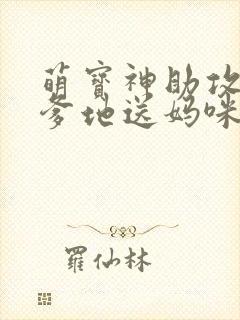 萌寶神助攻
爹地送媽咪
羅仙林